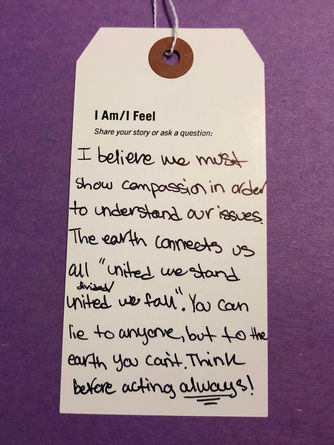 I Am/I Feel
Share your story or ask a question:
I believe we must
show compassion in order
to understand our issues.
The earth connects us
all "united we stand
divided
united we fall". You can
lie to anyone, but to the
earth you can't. Think
before acting always!